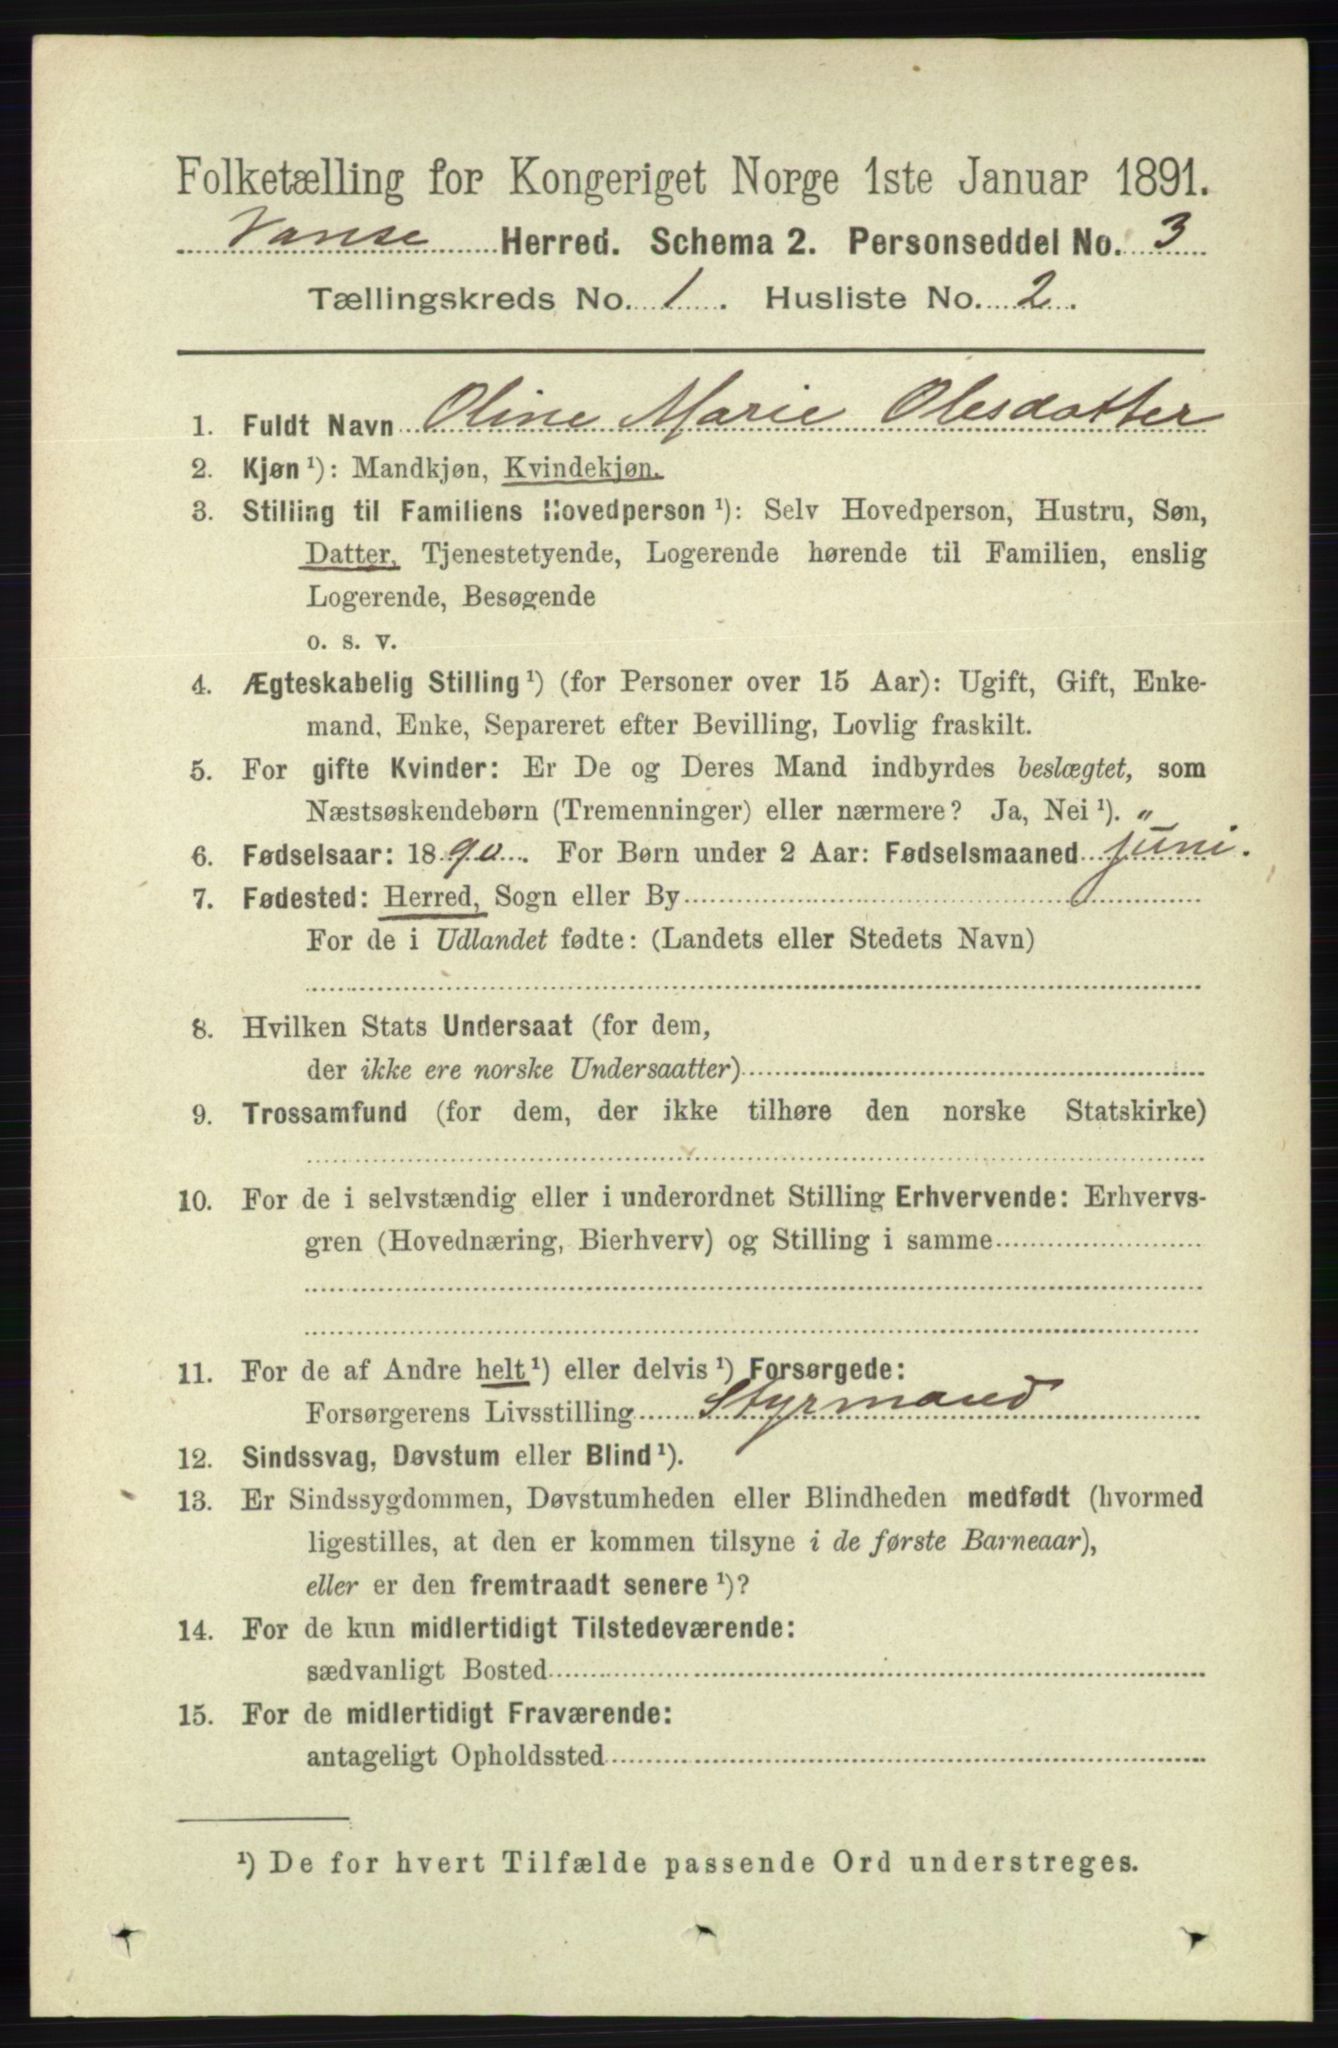 Folketælling for Kongeriget Norge 1ste Januar 1891.
Vanse Herred. Schema 2. Personseddel No. 3
Tællingskreds No. 1. Husliste No. 2.
1. Fuldt Navn Oline Marie Olesdatter
2. Kjøn ¹): Mandkjøn, Kvindekjøn.
3. Stilling til Familiens Hovedperson ¹): Selv Hovedperson, Hustru, Søn,
Datter, Tjenestetyende, Logerende hørende til Familien, enslig
Logerende, Besøgende
o. s. v.
4. Ægteskabelig Stilling ¹) (for Personer over 15 Aar): Ugift, Gift, Enke-
mand, Enke, Separeret efter Bevilling, Lovlig fraskilt.
5. For gifte Kvinder: Er De og Deres Mand indbyrdes beslægtet, som
Næstsøskendebørn (Tremenninger) eller nærmere? Ja, Nei ¹). "
6. Fødselsaar: 1890. For Børn under 2 Aar: Fødselsmaaned juni.
7. Fødested: Herred, Sogn eller By
For de i Udlandet fødte: (Landets eller Stedets Navn)
8. Hvilken Stats Undersaat (for dem,
der ikke ere norske Undersaatter)
9. Trossamfund (for dem, der ikke tilhøre den norske Statskirke)
10. For de i selvstændig eller i underordnet Stilling Erhvervende: Erhvervs-
gren (Hovednæring, Bierhverv) og Stilling i samme
11. For de af Andre helt ¹) eller delvis ¹) Forsørgede:
Forsørgerens Livsstilling Styrmand
12. Sindssvag, Døvstum eller Blind ¹).
13. Er Sindssygdommen, Døvstumheden eller Blindheden medfødt (hvormed
ligestilles, at den er kommen tilsyne i de første Barneaar),
eller er den fremtraadt senere ¹)?
14. For de kun midlertidigt Tilstedeværende:
sædvanligt Bosted
15. For de midlertidigt Fraværende:
antageligt Opholdssted
¹) De for hvert Tilfælde passende Ord understreges.